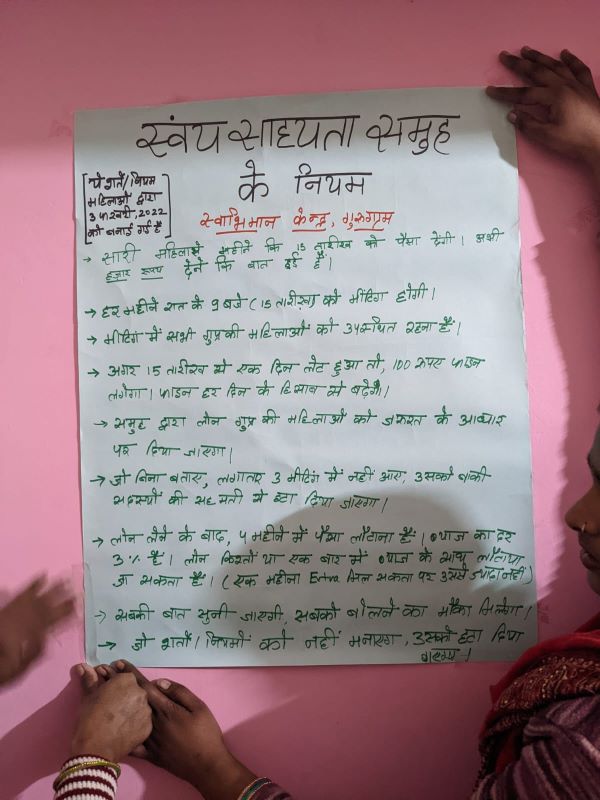 स्वंय साहयता समुह
के नियम
ये शर्ते/नियम
महिलाओ द्वारा
3 फरवरी, 2022
को बनाई गई है
स्वाभिमान केन्द्र, गुरुग्राम
→ सारी महिलाये महीने कि 15 तारीख को पैसा देंगी। अभी
हजार रूपए देने कि बात हुई है।
→ हर महीने रात के 9 बजे (15 तारीख) को मीटिंग होगी।
→ मीटिंग में सभी ग्रुप की महिलाओं को उपस्थित रहना है।
→ अगर 15 तारीख से एक दिन लेट हुआ तो, 100 रुपए फाइन
लगेगा। फाइन हर दिन के हिसाब से बढ़ेगी।
→ समुह द्वारा लोन ग्रुप की महिलाओं को जरुरत के आधार
पर दिया जाएगा।
→ जो बिना बताए, लगातार 3 मीटिंग में नहीं आए, उसको बाकी
सदस्यों की सहमती से हटा दिया जाएगा।
→ लोन लेने के बाद, 4 महीने में पैसा लौटाना है। ब्याज का दर
3% है। लोन किश्तों या एक बार में ब्याज के साथ लौटाया
जा सकता है। (एक महीना Extra मिल सकता पर उससे ज्यादा नहीं)
→ सबकी बात सुनी जाएगी, सबको बोलने का मौका मिलेगा।
→ जो शर्तो/नियमों को नहीं मनाएगा, उसको हटा दिया
जाएगा।